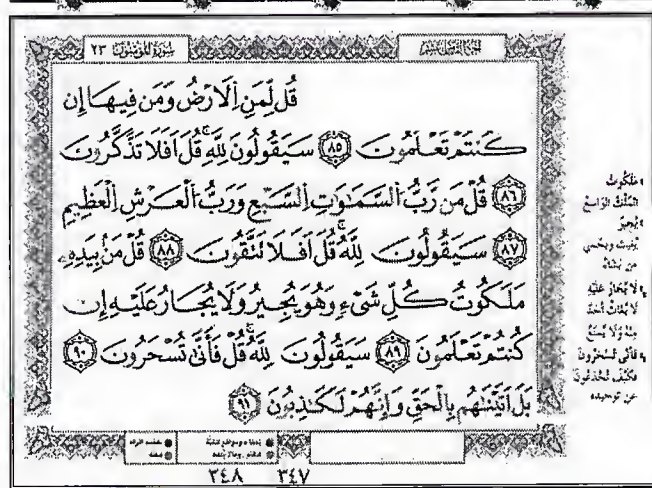 سُورَةُ المُؤمِنُون ٢٣
قُل لِّمَنِ اِ۬لَارْضُ وَمَن فِيهَا إِن
كُنتُمْ تَعْلَمُونَ ٨٥ سَيَقُولُونَ لِلهِۖ قُلَ اَفَلَا تَذَّكَّرُونَ
٨٦ قُلْ مَن رَّبُّ اُ۬لسَّمَٰوَٰتِ اِ۬لسَّبْعِ وَرَبُّ اُ۬لْعَرْشِ اِ۬لْعَظِيمِ
٨٧ سَيَقُولُونَ لِلهِۖ قُلَ اَفَلَا تَتَّقُونَ ٨٨ قُلْ مَنۢ بِيَدِهِۦ
مَلَكُوتُ كُلِّ شَيْءٍ وَهُوَ يُجِيرُ وَلَا يُجَارُ عَلَيْهِ إِن
كُنتُمْ تَعْلَمُونَ ٨٩ سَيَقُولُونَ لِلهِۖ قُلْ فَأَنَّىٰ تُسْحَرُونَ ٩٠
بَلَ اَتَيْنَٰهُم بِالْحَقِّ وَإِنَّهُمْ لَكَٰذِبُونَ ٩١
مَلَكُوتُ
المُلْكُ الوَاسِعُ
يُجِيرُ
يُغِيثُ ويَحْمِي
مَن يَشَاءُ
لَا يُجَارُ عَلَيْهِ
لَا يُغَاثُ أَحَدٌ
مِنْهُ وَلَا يُمْنَعُ
فَأَنَّى تُسْحَرُونَ
فَكَيْفَ تُخْدَعُونَ
عَن تَوْحِيدِهِ
٣٤٨ ٣٤٧